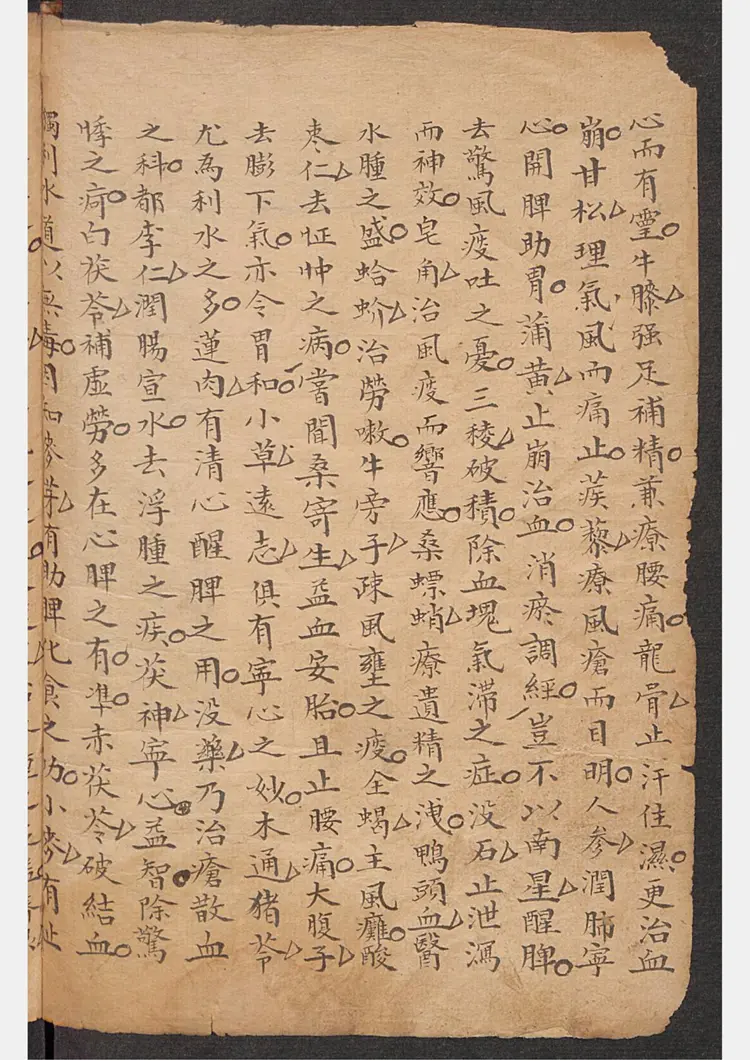 心而有靈○牛膝△强足補精○兼療腰痛○龍骨△止汗住濕○更治血
崩○甘松△理氣風而痛止○蒺藜△療風瘡而目明○人參△潤肺寧
心○開脾助胃○蒲黄△止崩治血○消瘀調經○豈不以南星△醒脾○
去驚風痰吐之憂○三稜△破積○除血塊氣滯之症○没石△止泄瀉
而神效○皂角△治風痰而響應○桑螵蛸△療遺精之洩○鴨頭血△醫
水腫之盛○蛤蚧△治勞嗽○牛旁子△疎風壅之痰○全蝎△主風癱○酸
枣仁△去怔忡之病○嘗聞桑寄生△益血安胎○且止腰痛○大腹子△
去膨下氣○亦令胃和○小草△遠志△俱有寧心之妙○木通△猪苓△
尤為利水之多○蓮肉△有清心醒脾之用○没藥△乃治瘡散血
之科○都李仁△潤腸宣水○去浮腫之疾○茯神△寧心○益智●除驚
悸之疴○白茯苓△補虚勞○多在心脾之有○凖○赤茯苓△破結血○
獨利水道以無毒○因知麥芽△有助脾化食之功○小麥△有止